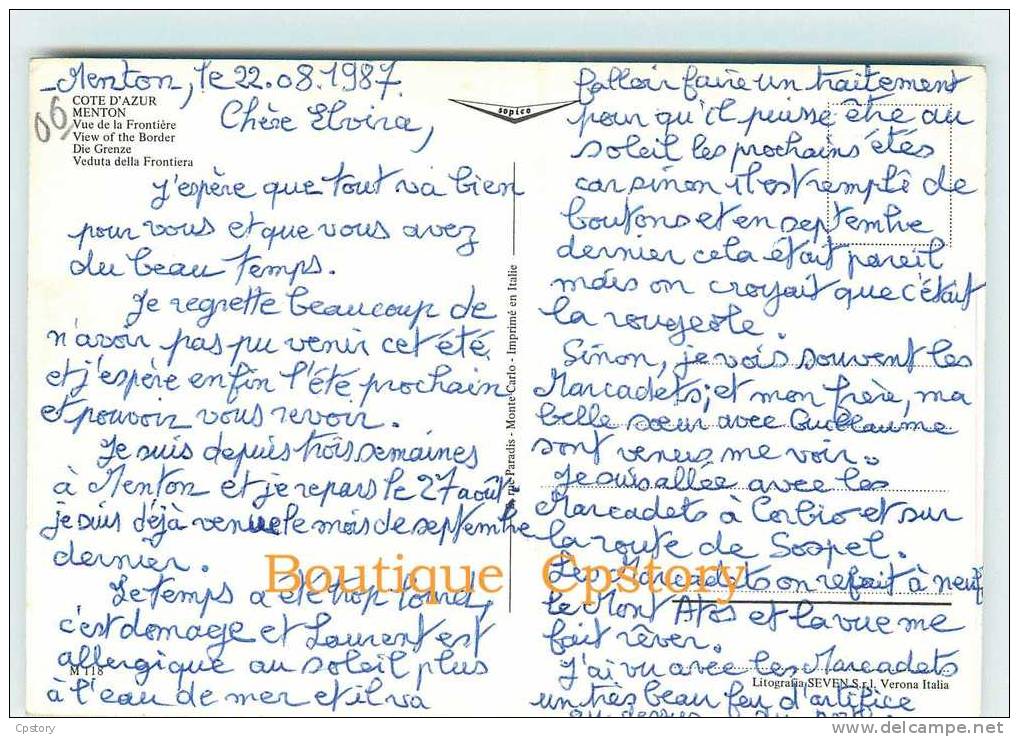 Menton, le 22.08.1987.
COTE D'AZUR
MENTON
Vue de la Frontière
View of the Border
Die Grenze
Veduta della Frontiera
06
Chère Elvira,
J'espère que tout va bien
pour vous et que vous avez
du beau temps.
Je regrette beaucoup de
n'avoir pas pu venir cet été
et j'espère enfin l'été prochain
et pouvoir vous revoir.
Je suis depuis trois semaines
à Menton et je repars le 27 août
je suis déjà venue le mois de septembre
dernier.
Le temps a été trop lourd,
c'est domage et Laurent est
allergique au soleil plus
à l'eau de mer et il va
M 118
sopico
rue Paradis - Monte-Carlo - Imprimé en Italie
falloir faire un traitement
pour qu'il puisse être au
soleil les prochains étés
car sinon il est rempli de
boutons et en septembre
dernier cela était pareil
mais on croyait que c'était
la rougeole.
Sinon, je vois souvent les
Marcadets; et mon frère, ma
belle sœur avec Guillaume
sont venus me voir.
Je suis allée avec les
Marcadets à Corbio et sur
la route de Sospel.
Les Marcadets on refait à neuf
le Mont et la vue me
fait rêver.
J'ai vu avec les Marcadets
un très beau feu d'artifice
au dessus du
Litografia SEVEN S.r.l. Verona Italia
Boutique Cpstory
Cpstory
www.delcampe.net